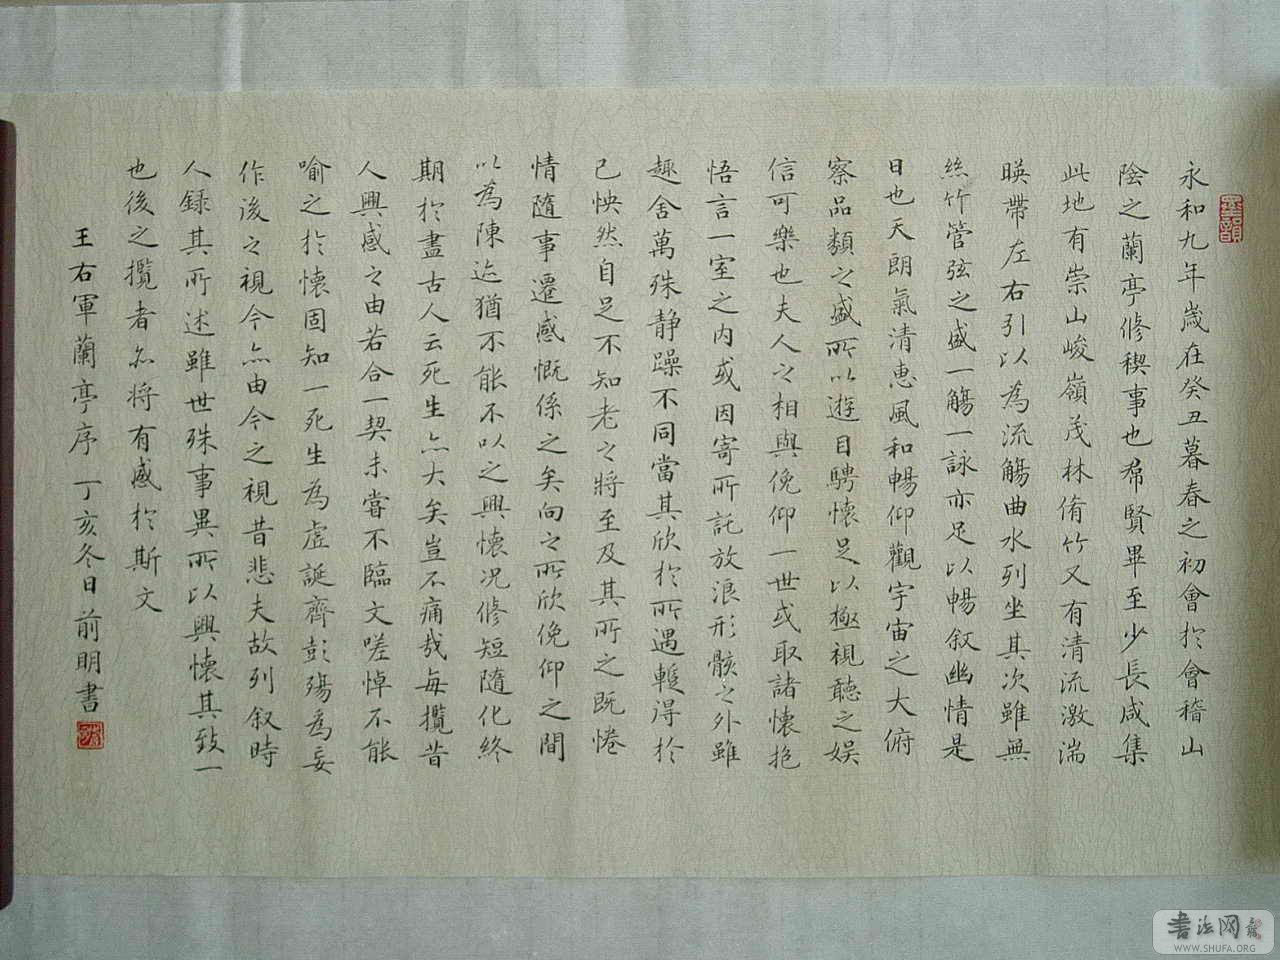 永和九年歲在癸丑暮春之初會於會稽山
陰之蘭亭修稧事也群賢畢至少長咸集
此地有崇山峻嶺茂林脩竹又有清流激湍
暎帶左右引以為流觴曲水列坐其次雖無
絲竹管弦之盛一觴一詠亦足以暢叙幽情是
日也天朗氣清惠風和暢仰觀宇宙之大俯
察品類之盛所以遊目騁懷足以極視聽之娱
信可樂也夫人之相與俛仰一世或取諸懷抱
悟言一室之内或因寄所託放浪形骸之外雖
趣舍萬殊静躁不同當其欣於所遇暫得於
己怏然自足不知老之將至及其所之既惓
情隨事遷感慨係之矣向之所欣俛仰之間
以為陳迹猶不能不以之興懷况修短隨化終
期於盡古人云死生亦大矣豈不痛哉每攬昔
人興感之由若合一契未嘗不臨文嗟悼不能
喻之於懷固知一死生為虛誕齊彭殤為妄
作後之視今亦由今之視昔悲夫故列叙時
人録其所述雖世殊事異所以興懷其致一
也後之攬者亦將有感於斯文
王右軍蘭亭序 丁亥冬日前明書
書法网
WWW.SHUFA.ORG